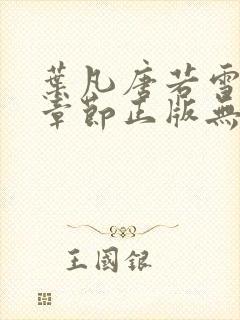 葉凡唐若雪
章節正版無
王國銀